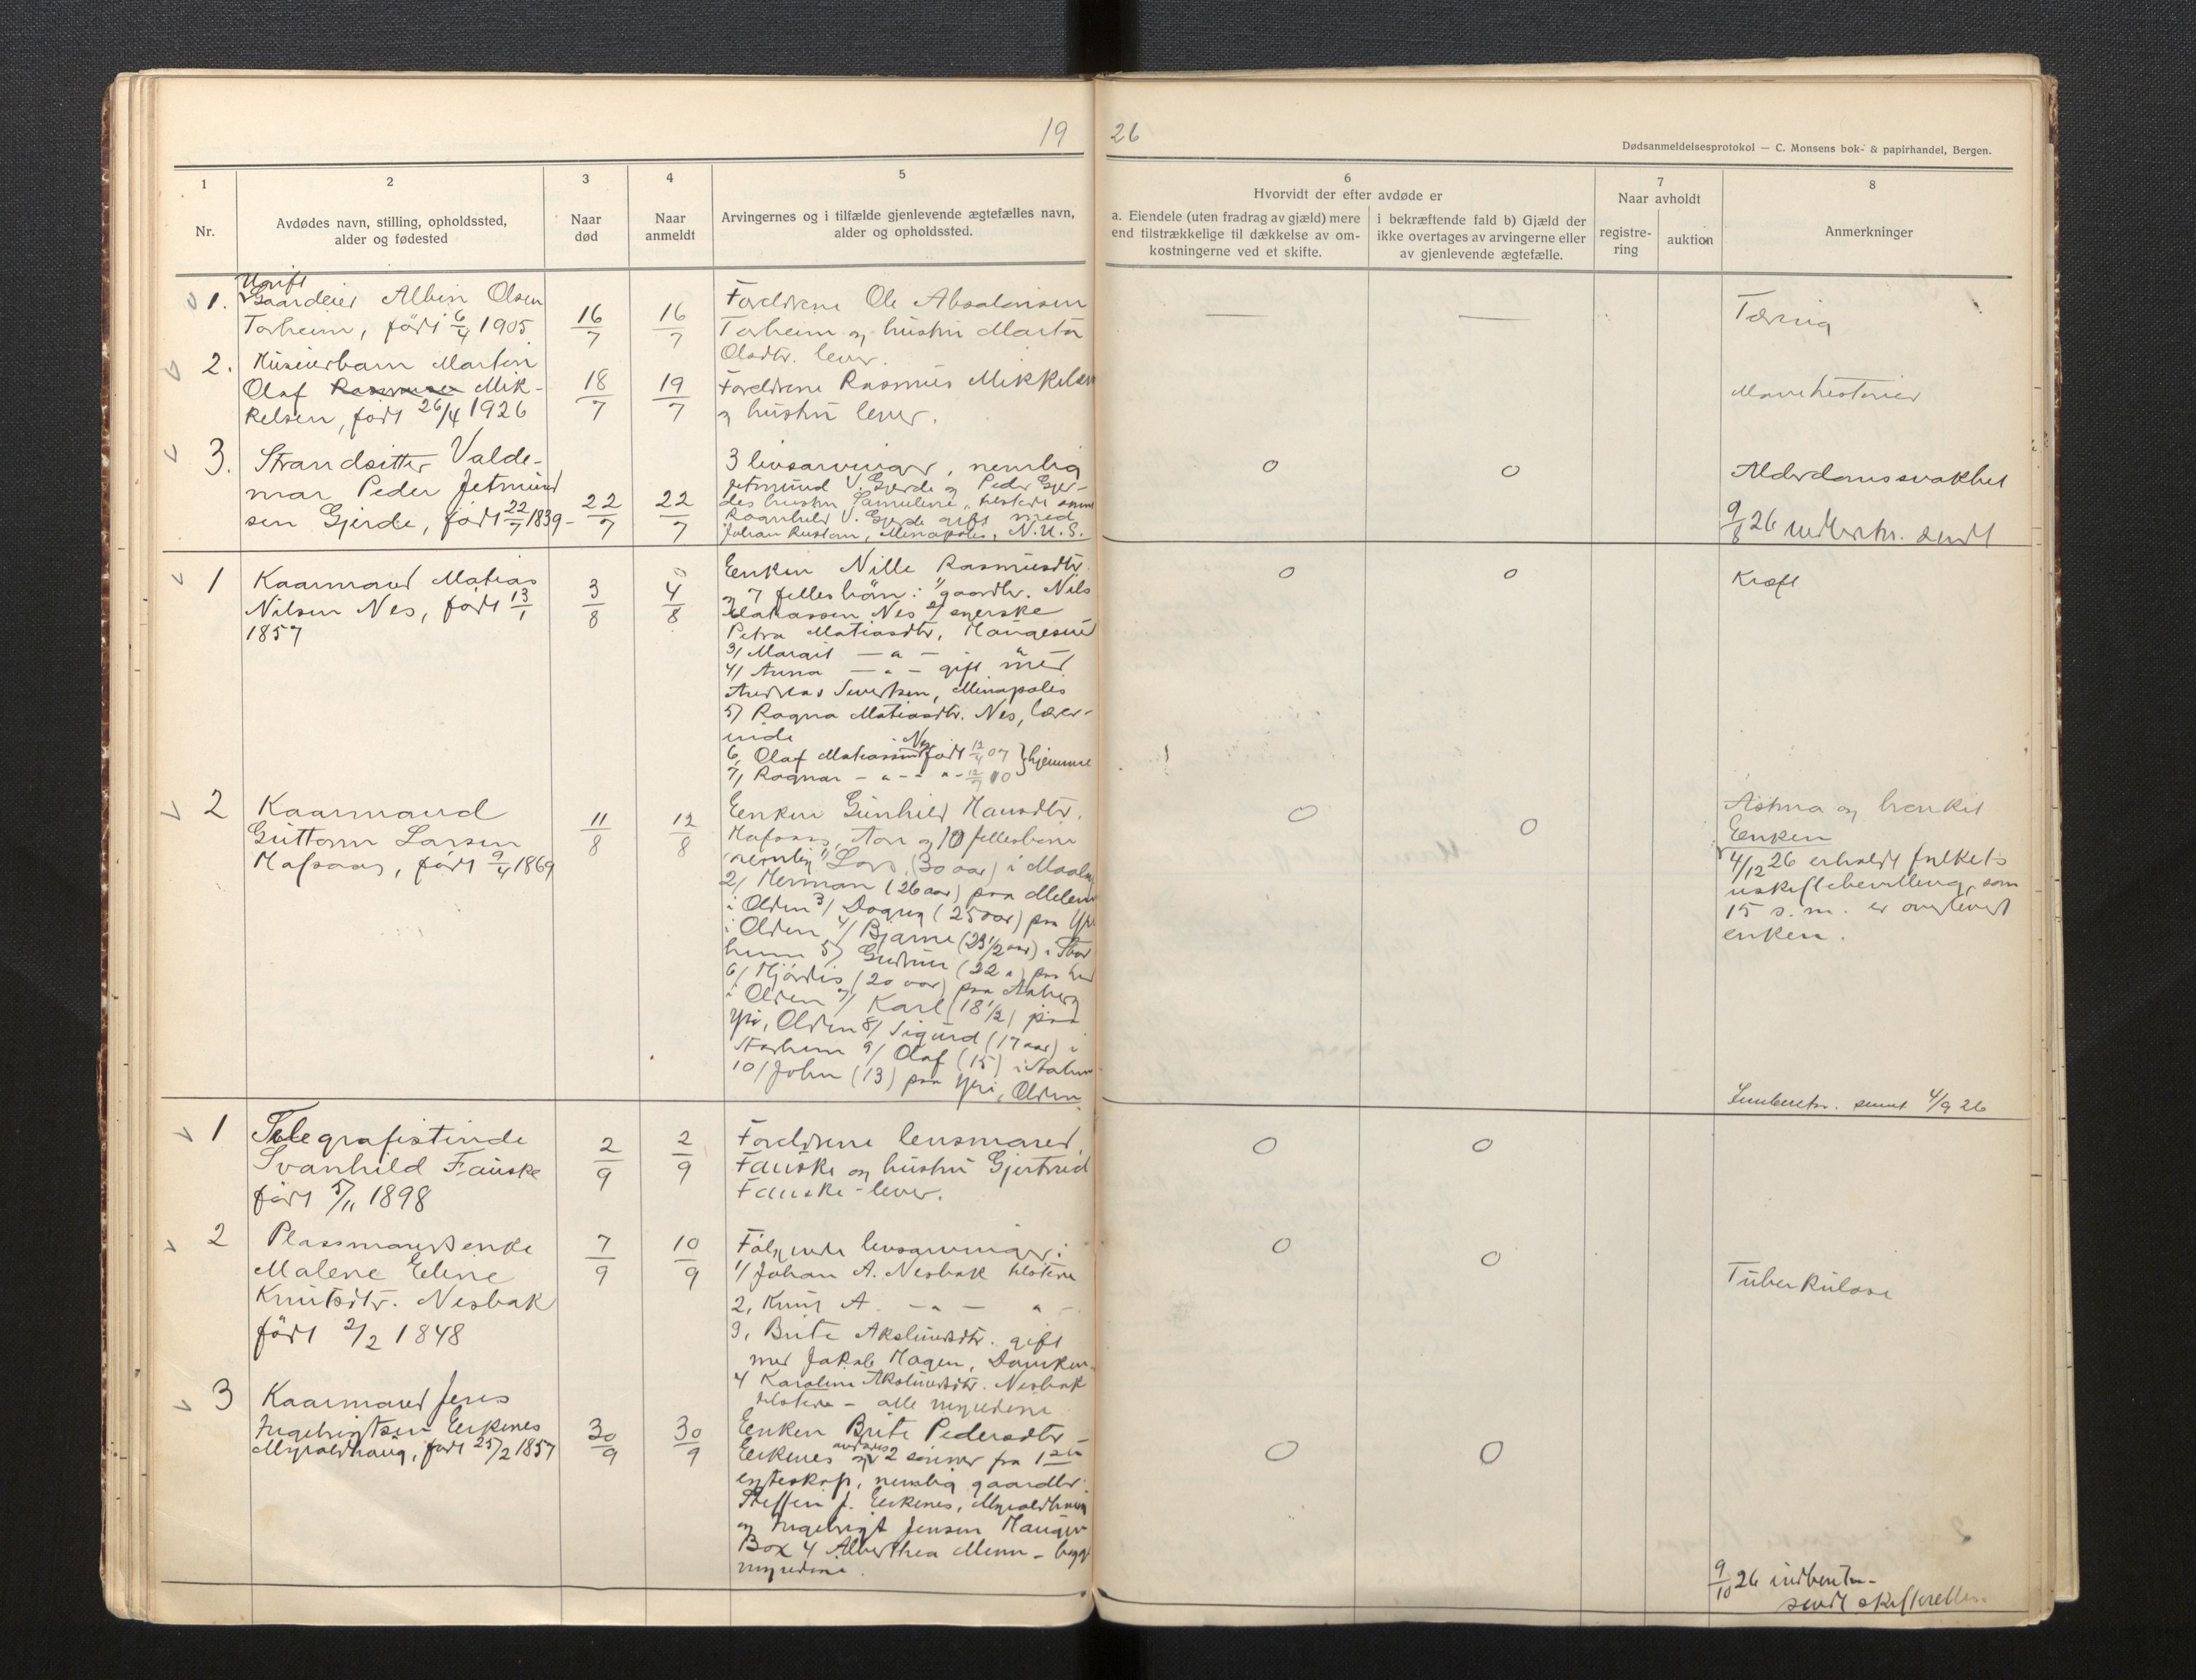 19
26
Dødsanmeldelsesprotokol — C. Monsens bok- & papirhandel, Bergen.
1
Nr.
2
Avdødes navn, stilling, opholdssted,
alder og fødested
3
Naar
død
4
Naar
anmeldt
5
Arvingernes og i tilfælde gjenlevende ægtefælles navn,
alder og opholdssted.
6
Hvorvidt der efter avdøde er
a. Eiendele (uten fradrag av gjæld) mere
end tilstrækkelige til dækkelse av om-
kostningerne ved et skifte.
i bekræftende fald b) Gjæld der
ikke overtages av arvingerne eller
av gjenlevende ægtefælle.
7
Naar avholdt
registre-
ring
auktion
8
Anmerkninger
Ugift
1. Gaardeier Albin Olsen
Torheim, født 6/4 1905
16/7
16/7
Foreldrene Ole Absalonsen
Torheim og hustru Marta
Olsdtr. lever.
— —
Tæring
2.
barn Martin
Olaf Rasmusen Mik-
kelsen, født 26/4 1926
18/7
19/7
Foreldrene Rasmus Mikkelsen
og hustru lever.
3. Strandsitter Valde-
mar Peder Jetmund
sen Gjerde, født 22/7 1839-
22/7
22/7
3 livsarvinger, nemlig
Jetmund V. Gjerde og Peder Gjer-
des hustru Samuline, tilstede samt
Ragnhild V. Gjerde gift med
Johan Rustan, Minapolis, N.U.S.
0 0
Alderdomssvakhet
9/8 26 sendt
1 Kaarmand Matias
Nilsen Nes, født 13/1
1857
3/8
4/8
Enken Nille Rasmusdtr.
og 7 fellesbørn: 1/ gaardbr. Nils
Matiassen Nes 2/ syerske
Petra Matiasdtr, Haugesund
3/ Margit — " — "
4/ Anna — " — gift med
Andreas Sivertsen, Minapolis
5/ Ragna Matiasdtr. Nes, lærer-
inde
6, Olaf Matiassen Nes født 12/4 07 } hjemme
7, Ragnar — " — " — 10
0 0
Kræft
2 Kaarmand
Guttorm Larsen
Hafsaas, født 9/4 1869
11/8
12/8
Enken Gunhild Hansdtr.
Hafsaas, og 10 fellesbørn
nemlig 1/ Lars (30 aar) i
2/ Herman (26 aar) paa Melem
i Olden 3/ Dagny (25 aar) paa Yri
i Olden 4/ Bjarne (23 1/2 aar) i Star
heim 5/ Gudrun (22 ")
6/ Hjørdis (20 aar) paa Aaberg
i Olden 7/ Karl (18 1/2) paa
Yri, Olden 8/ Sigurd (17 aar) i
Starheim 9/ Olaf (15) i
10/ John (13) paa Yri, Olden
0 0
Astma og bronkit
Enken
4/12 26 erholdt fylkets
uskiftebevilling, som
15 s.m. er overlevert
enken.
sendt 4/9 26
1 Telegrafistinde
Svanhild Fauske
født 5/11 1898
2/9
2/9
Foreldrene lensmand
Fauske og hustru Gjertrud
Fauske - lever.
0 0
2 Plassmandsenke
Malene Eline
Knutsdtr. Nesbak
født 2/2 1848
7/9
10/9
Følgende livsarvinger:
1/ Johan A. Nesbak tilstede
2, Knut A. — " — " —
3, Brite Akslundsdtr. gift
med Jakob Hagen,
4 Karoline Akslundsdtr. Nesbak
tilstede - alle myndige
0 0
Tuberkulose
3 Kaarmand Jens
Ingebrigtsen Eikenes
Myroldhaug, født 25/2 1857
30/9
30/9
Enken Brite Pedersdtr -
Eikenes og avdødes 2 sønner fra 1ste
egteskap, nemlig gaardbr.
Steffen J. Eikenes, Myroldhaug
og Ingebrigt Jensen Haugen
Box 4 Alberthea Minn - begge
myndige.
0 0
9/10 26
sendt skifteretten.